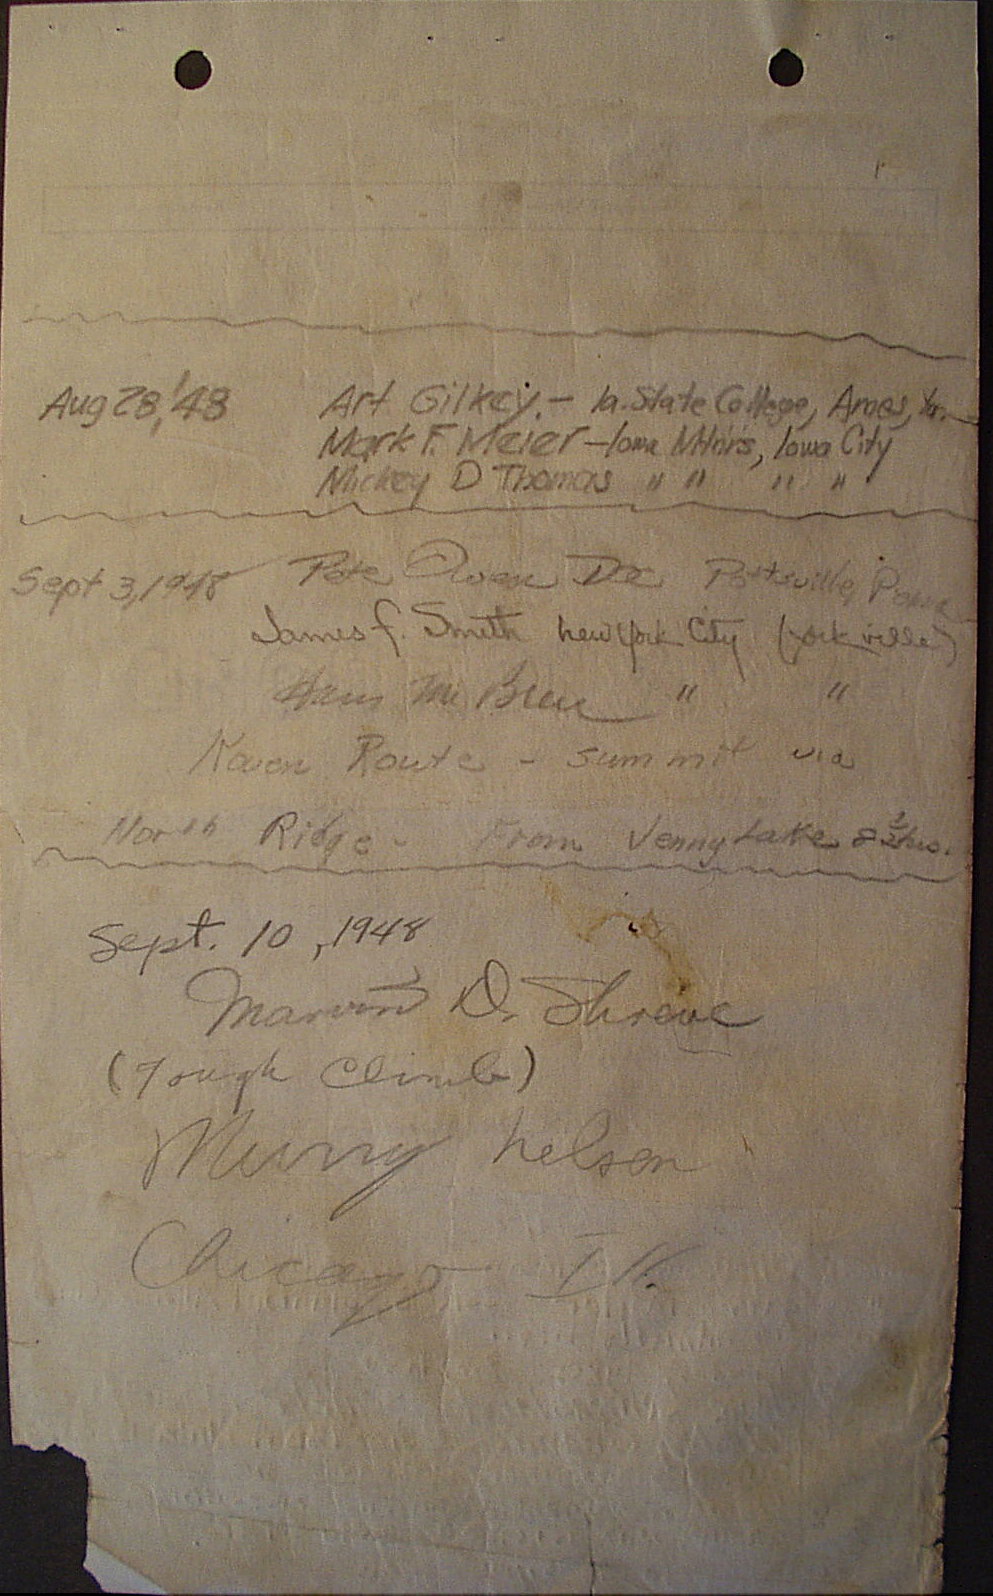 Aug 28, '48 Art Gilkey. – Ia. State College, Ames, Ia.
Mark F. Meier – Iowa Mtn'rs, Iowa City
Mickey D Thomas " " " "
Sept 3, 1948 Pete Owen Potsville, Penna
James f. Smith new york City (york ville)
" "
Route - summit via
North Ridge - From Jenny Lake 8 1/2 hrs.
Sept. 10, 1948
Marvin D. Shreve
(Tough Climb)
Murry nelson
Chicago Ill.